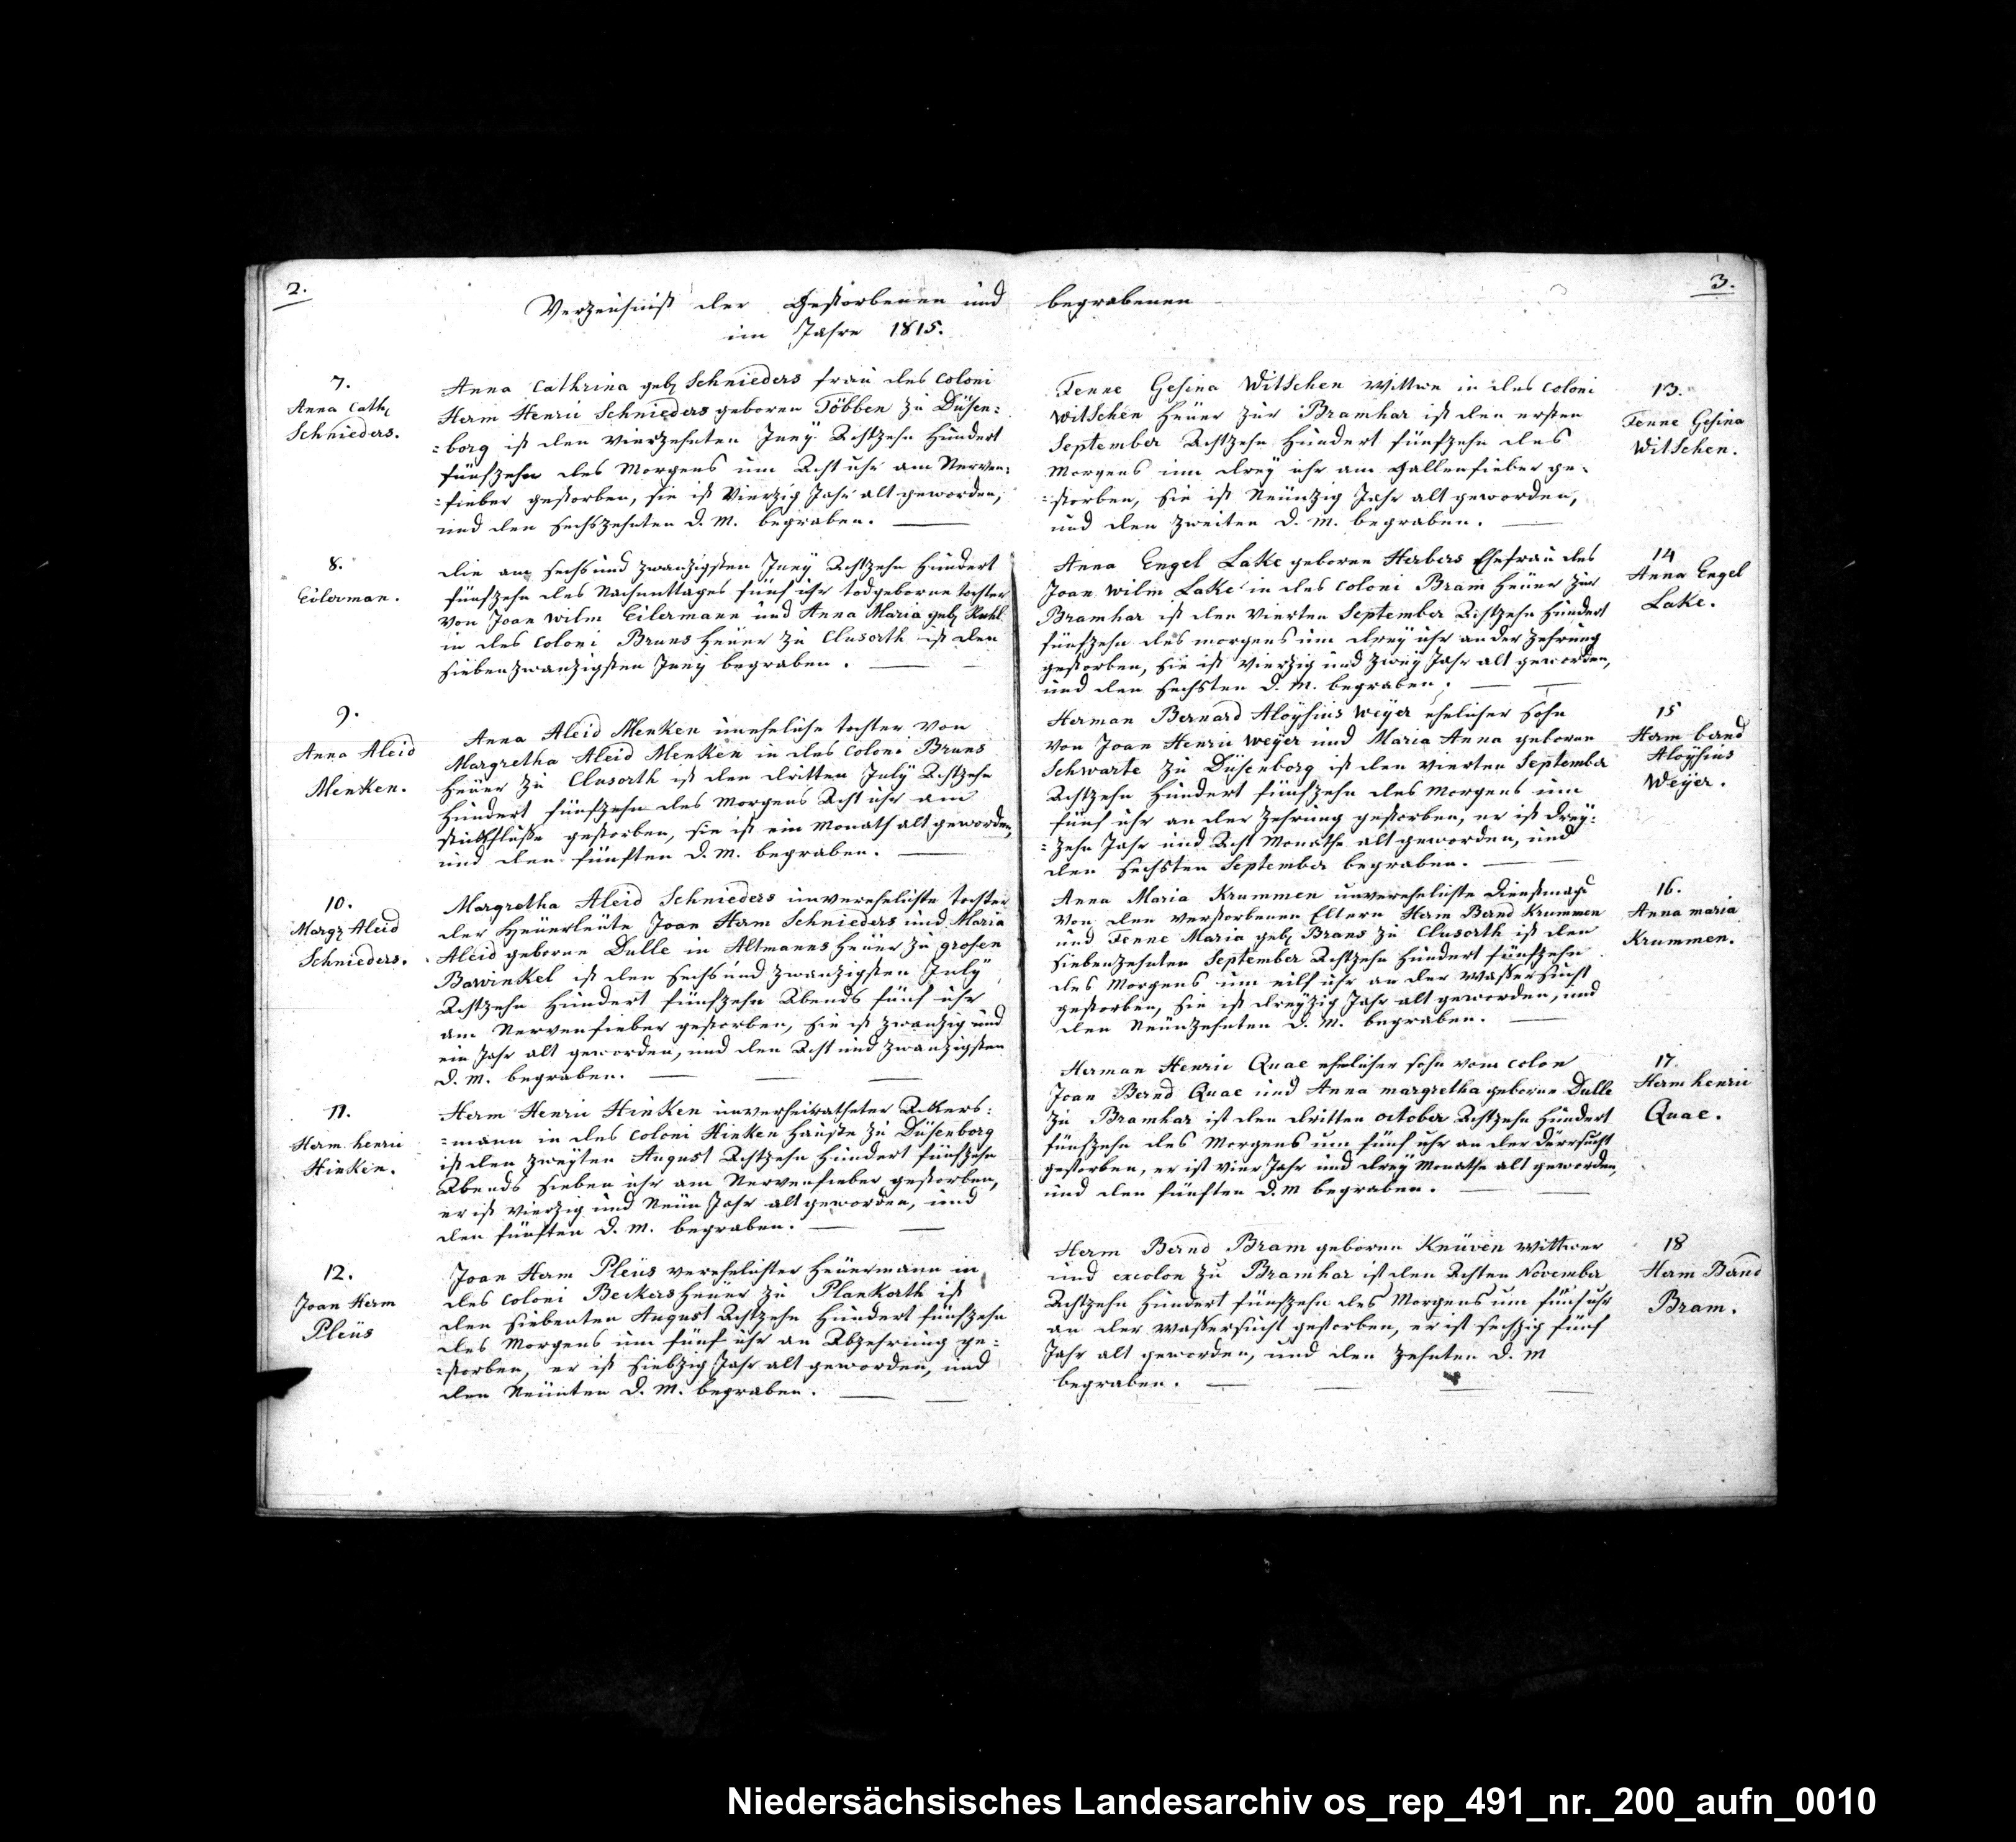 2.
Verzeichniß der Gestorbenen und
im Jahre 1815.
7.
Anna Cath.
Schnieders.
Anna Cathrina geb. Schnieders frau des Coloni
Herm Henric Schnieders geboren Többen zu Düsen=
=borg ist den vierzehnten Juny Achtzehn Hundert
fünfzehn des Morgens um Acht uhr am Nerven=
=fieber gestorben, sie ist Vierzig Jahr alt geworden,
und den sechszehnten d. M. begraben.
8.
Eilerman.
die am sechs und zwanzigsten Juny Achtzehn Hundert
fünfzehn des Nachmittages fünf uhr todgeborne tochter
von Joan Wilm Eilermann und Anna Maria geb.
in des Coloni Bruns Heuer zu Clusorth ist den
siebenzwanzigsten Juny begraben.
9.
Anna Aleid
Menken.
Anna Aleid Menken uneheliche tochter von
Margretha Aleid Menken in des Coloni Bruns
Heuer zu Clusorth ist den dritten July Achtzehn
Hundert fünfzehn des Morgens Acht uhr am
stickflusse gestorben, sie ist ein Monath alt geworden,
und den fünften d. M. begraben.
10.
Margr. Aleid
Schnieders.
Margretha Aleid Schnieders unverehelichte tochter
der Heuerleute Joan Herm Schnieders und Maria
Aleid geborne Dulle in Altmanns Heuer zu grosen
Bawinkel ist den sechs und zwanzigsten July
Achtzehn Hundert fünfzehn Abends fünf uhr
am Nervenfieber gestorben, sie ist zwanzig und
ein Jahr alt geworden, und den Acht und zwanzigsten
d. M. begraben.
11.
Herm henric
Hinkin.
Herm Henric Hinken unverheiratheter Ackers=
=mann in des Coloni Hinken Hause zu Düsenborg
ist den zweyten August Achtzehn Hundert fünfzehn
Abends sieben uhr am Nervenfieber gestorben,
er ist vierzig und Neun Jahr alt geworden, und
den fünften d. M. begraben.
12.
Joan Herm
Pleüs
Joan Herm Pleüs verehelichter Heuermann in
des Coloni Beckers Heuer zu Plankorth ist
den siebenten August Achtzehn Hundert fünfzehn
des Morgens um fünf uhr an Abzehrung ge=
=storben, er ist siebzig Jahr alt geworden, und
den Neunten d. M. begraben.
3.
begrabenen
Fenne Gesina Witschen Wittwe in des Coloni
Witschen Heuer zur Bramhar ist den ersten
September Achtzehn Hundert fünfzehn des
Morgens um drey uhr am Gallenfieber ge=
=storben, sie ist Neunzig Jahr alt geworden,
und den zweiten d. M. begraben.
13.
Fenne Gesina
Witschen.
Anna Engel Lake geboren Herbers Ehefrau des
Joan Wilm Lake in des Coloni Bram Heuer zur
Bramhar ist den vierten September Achtzehn Hundert
fünfzehn des morgens um drey uhr an der Zehrung
gestorben, sie ist vierzig und zwey Jahr alt geworden,
und den sechsten d. M. begraben.
14
Anna Engel
Lake.
Herman Bernard Aloysius Weyer ehelicher sohn
von Joan Henric Weyer und Maria Anna geboren
Schwarte zu Düsenborg ist den vierten September
Achtzehn Hundert fünfzehn des Morgens um
fünf uhr an der Zehrung gestorben, er ist drey=
=zehn Jahr und Acht Monathe alt geworden, und
den sechsten September begraben.
15
Herm bernd
Aloysius
Weyer.
Anna Maria Krummen unverehelichte dienstmagd
von den verstorbenen Eltern Herm Bernd Krummen
und Fenne Maria geb. Brans zu Clusorth ist den
siebenzehnten September Achtzehn Hundert fünfzehn
des Morgens um eilf uhr an der Wassersucht
gestorben, sie ist dreyzig Jahr alt geworden, und
den Neunzehnten d. M. begraben.
16.
Anna maria
Krummen.
Herman Henric Quae ehelicher sohn vom Colon
Joan Bernd Quae und Anna margretha geborne Dulle
zu Bramhar ist den dritten october Achtzehn Hundert
fünfzehn des Morgens um fünf uhr an der dürrsucht
gestorben, er ist vier Jahr und drey Monathe alt geworden,
und den fünften d. M begraben.
17.
Herm henric
Quae.
Herm Bernd Bram geboren Knüven Wittwer
und excolon zu Bramhar ist den Achten November
Achtzehn Hundert fünfzehn des Morgens um fünf uhr
an der Wassersucht gestorben, er ist sechzig fünf
Jahr alt geworden, und den zehnten d. M
begraben.
18
Herm Bernd
Bram.
Niedersächsisches Landesarchiv os_rep_491_nr._200_aufn_0010